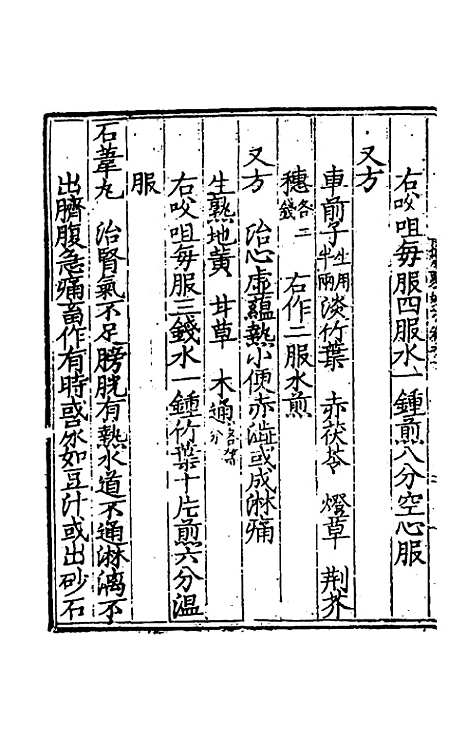 右㕮咀每服四服水一鍾煎八分空心服
又方
車前子生用半兩淡竹葉 赤茯苓 燈草 荆芥
穗各二錢 右作二服水煎
又方 治心虛蘊熱小便赤澁或成淋痛
生熟地黄 甘草 木通各等分
右㕮咀每服三錢水一鍾竹葉十片煎六分溫
服
石葦丸 治腎氣不足膀胱有熱水道不通淋漓不
出臍腹急痛畜作有時或尿如豆汁或出砂石